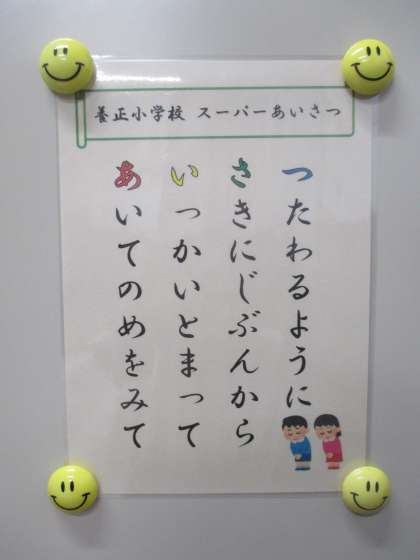 養正小学校 スーパーあいさつ
あいてのめをみて
いっかいとまって
さきにじぶんから
つたわるように